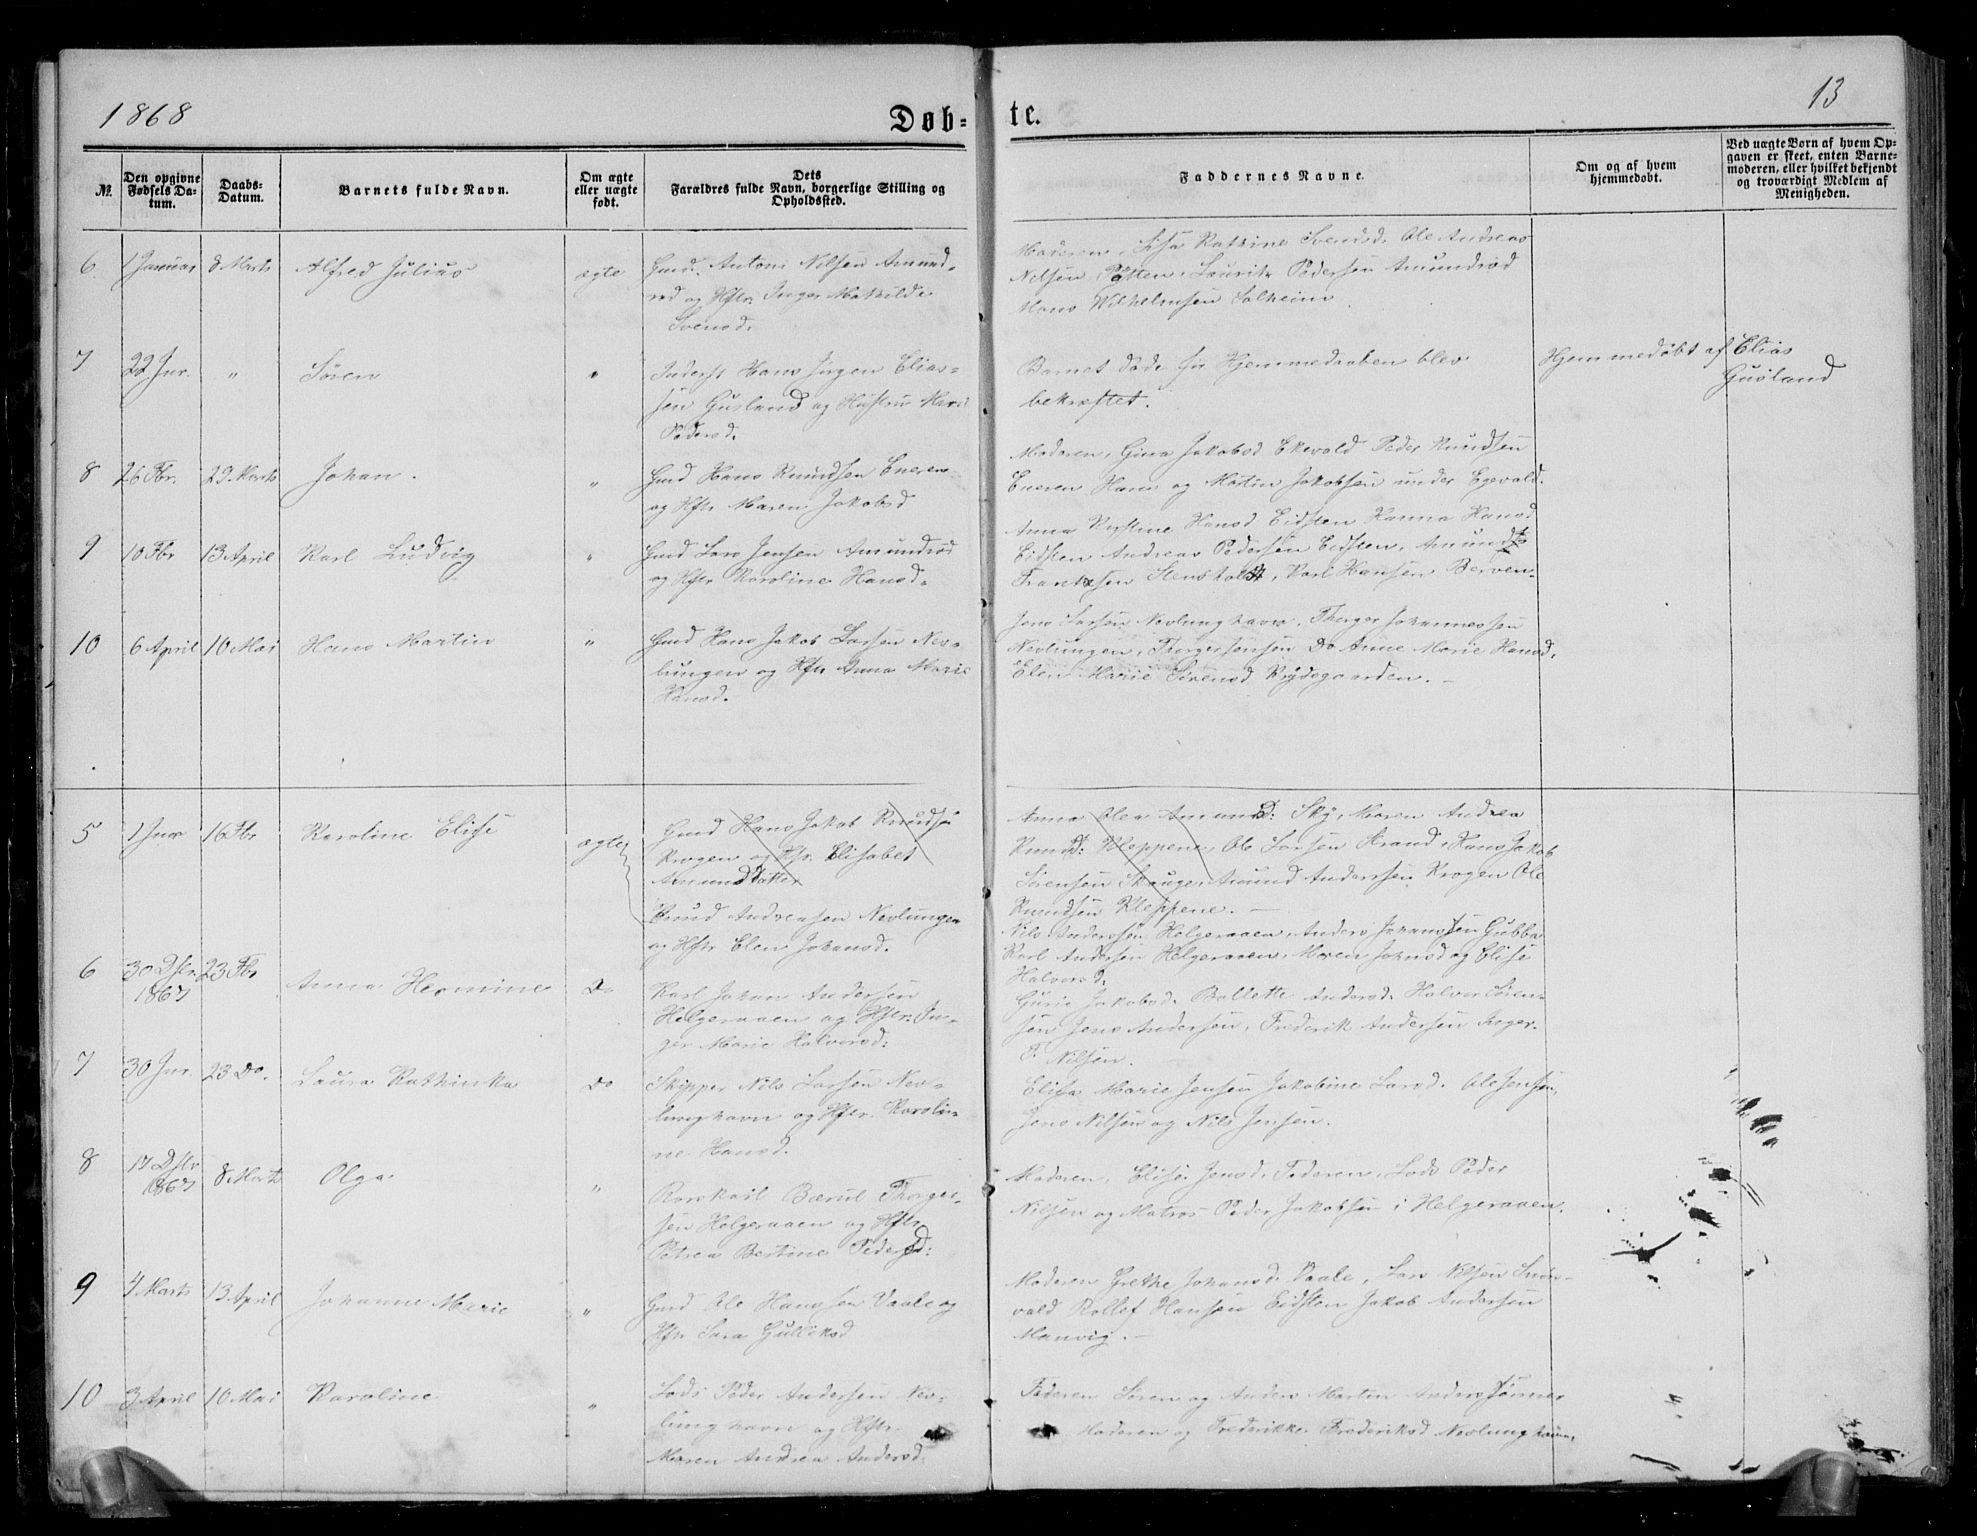 1868
Døb-
te.
13
№
Den opgivne Fødsels Datum.
Daabs-Datum.
Barnets fulde Navn.
Om ægte eller uægte født.
Dets Forældres fulde Navn, borgerlige Stilling og Opholdssted.
Faddernes Navne.
Om og af hvem hjemmedøbt.
Ved uægte Børn af hvem Opgaven er skeet, enten Barnemoderen, eller hvilket bekjendt og troværdigt Medlem af Menigheden.
6 1 Januar 8 Marts Alfred Julius ægte
Gmd. Antoni Nilsen Amund-
rød og Hstr. Inger Mathilde
Svensd.
Moderen, Lisa Kathine Svendsd. Ole Andreas
Nilsen, Lauritz Pedersen Amundrød
Hans Wilhelmsen Solheim
7 22 Jnr. " Søren "
Inderst Hans Jørgen Elias-
sen Gusland og Hustru
Pedersd.
Barnet døde før Hjemmedaaben blev
bekræftet.
Hjemmedøbt af Elias
Gusland
8 26 Fbr. 29 Marts Johan. "
Gmd Hans Knudsen Eneren
og Hstr Maren Jakobsd
Moderen, Gina Jakobsd Ekevald Peder Knudsen
Eneren Hans og Martin Jakobsen under Egevald.
9 10 Fbr 13 April Karl Ludvig "
Gmd Lars Jensen Amundrød
og Hstr Karoline Hansd.
Anna Kristine Hansd Eidsten Hanna Hansd
Eidsten Andreas Pedersen Eidsten, Amund
Frantzsen Stensholt, Karl Hansen Berven.
10 6 April 10 Mai Hans Martin "
Gmd Hans Jakob Larsen Nev-
lungen og Hstr Anna Marie
Hansd.
Jens Larsen Nevlunghavn, Thorger Johannessen
Nevlungen, Do Anne Marie Hansd,
Elen Marie Sørensd Brydegaarden. -
5 1 Jnr 16 Fbr Karoline Elise ægte
Gmd Hans Jakob Knudsen
Krogen og Hstr. Elisabet
Amundsdatter
Knud Andreasen Nevlungen
og Hstr Elen Johansd.
Anna Olea Amundsd: Sky, Maren Andrea
Knudsd: Kleppene, Ole Larsen Strand, Hans Jakob
Sørensen Skauge, Amund Anderssen Krogen Ole
Knudsen Kleppene. -
6 30 Dsbr. 1867 23 Fbr Anna Hermine Do
Karl Johan Andersen
Helgeraaen og Hstr. In-
ger Marie Halvorsd:
Nils Anderssen Helgeraaen, Anders Johannssen Gubba
Karl Andersen Helgeraaen, Maren Johnsd og Elise
Halvorsd.
7 30 Jnr. 23 Do. Laura Kathinka Do
Skipper Nils Larsen Nev-
lunghavn og Hstr. Karoli-
ne Hansd.
Gurie Jakobsd. Bollette Andersd. Halvor Søren-
sen Jens Andersen, Frederik Andersen Inger.
P. Nilsen.
Elisa Marie Jensen Jakobine Larsd. Ole Jensen,
Jens Nilsen og Nils Jensen.
8 17 Dsbr 1867 8 Marts Olga "
Rorskarl Thorger-
sen Helgeraaen og Hstr
Petrea Bertine Pedersd:
Moderen, Elise Jensd, Faderen, Lods Peder
Nilsen og Matros Peder Jakobsen i Helgeraaen.
9 4 Marts 13 April Johanne Marie "
Gmd Ole Hanssen Vaale og
Hstr Sara Gulliksd
Moderen Grethe Johansd. Vaale, Lars Nilsen
vald Rollef Hansen Eidsten Jakob Andersen
Manvig. -
10 3 April 10 Mai Karoline "
Lods Peder Andersen Nev-
lunghavn og Hstr.
Maren Andrea Andersd.
Faderen Søren og Anders Martin Anders Sønner
Moderen og Frederikke Frederiksd Nevlunghavn,